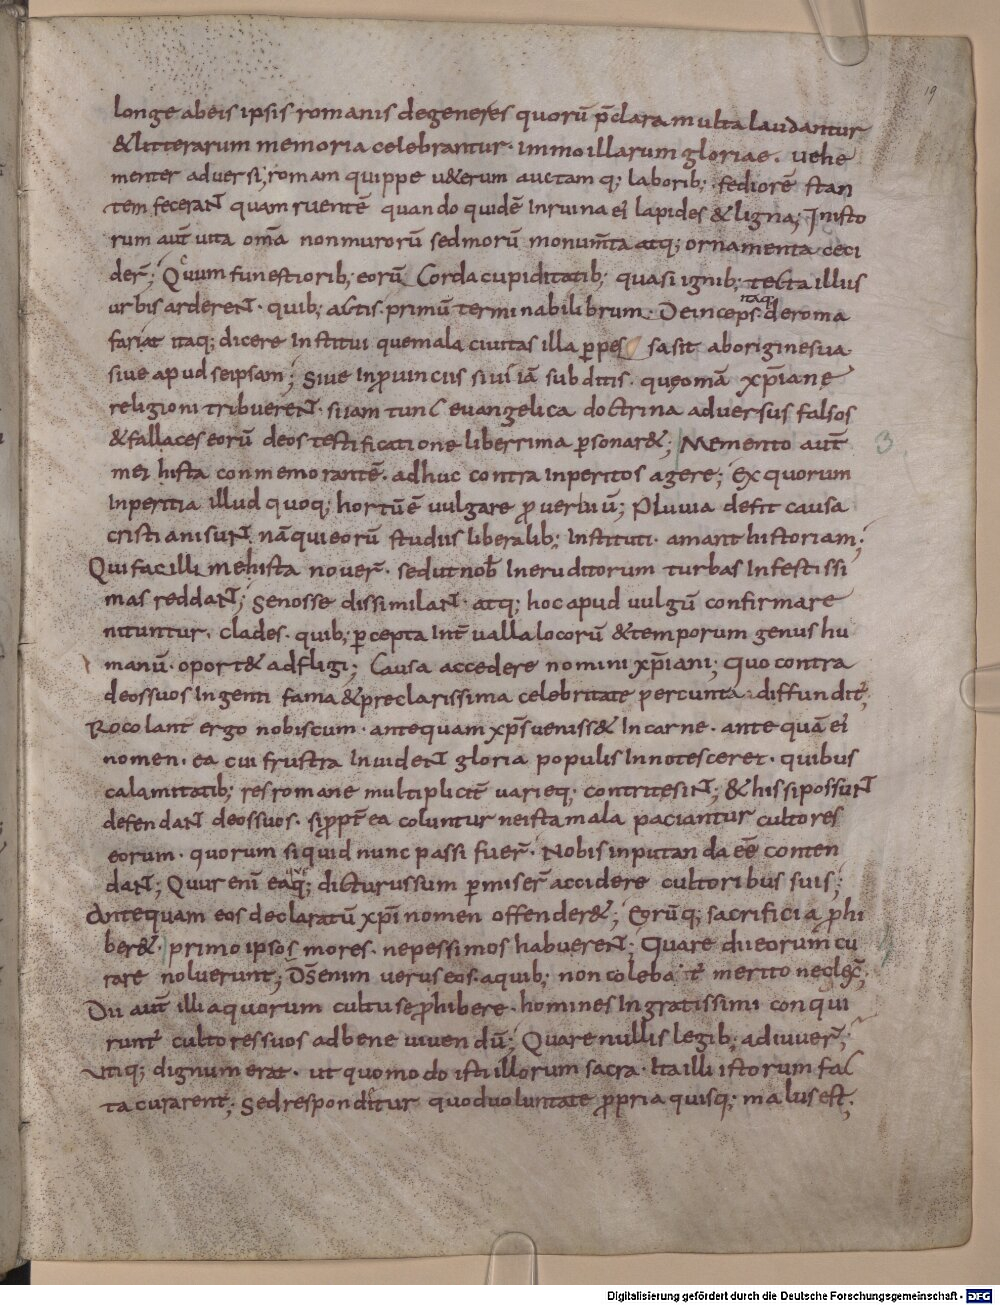 19
longe abeis ipsis romanis degeneres quorū p̄clara multa laudantur
&litterarum memoria celebrantur· immo illarum gloriae· uehe
menter aduersi; romam quippe u&erum auctam q; laborib; · fediorē stan
tem feceraɴᴛ quam ruentē quando quidē Inruina ei lapides &ligna; Inisto
rum aut̄ uita om̄a nonmurorū sedmorū monum̄ta atq; ornamenta ceci
der̄; Quum funestiorib; eorū Corda cupiditatib; quasi ignib; tecta illius
urbis ardereɴᴛ· quib; actis· primū terminabi librum· Deinceps itaq; deroma
fariat itaq; dicere Institui quemala ciuitas illa ꝑpessa sit aborigine sua
siue apud seipsam; Siue Inꝓuinciis siui iā subditis· queomā xp̄iane
religioni tribuereɴᴛ· si iam tunc euangelica doctrina aduersus falsos
&fallaces eorū deos testificatione liberrima ꝑsonar&; Memento aut̄
me hista conmemorantē· adhuc contra Inperitos agere; Ex quorum
Inperitia illud quoq; hortū ē uulgare ꝓuerbiū; Pluuia defit causa
cristiani suɴᴛ nā qui eorū studiis liberalib; Instituti· amant historiam;
Qui facilli me hista nouer̄· sed ut nob̄ Ineruditorum turbas Infestissi
mas reddaɴᴛ; Senosse dissimilaɴᴛ· atq; hoc apud uulgū confirmare
nituntur· clades· quib; ꝑcepta Int̄ualla locorū &temporum genus hu
manū· oport& adfligi; Causa accedere nomini xp̄iani; Quo contra
deos suos Ingenti fama &preclarissima celebritate per cuncta diffundit̄;
Rocolant ergo nobiscum· antequam xp̄s ueniss& Incarne· ante quā ei
nomen· ea cui frustra Inuideɴᴛ gloria populis Innotesceret· quibus
calamitatib; res romane multiplicit̄ uarieq; contritesiɴᴛ; &his si possuɴᴛ
defendaɴᴛ deos suos· si ꝓpt̄ ea coluntur ne ista mala paciantur cultores
eorum· quorum siquid nunc passi fuer̄· Nobis inputanda eē conten
daɴᴛ; Quur eni ea q; dicturus sum ꝑmiser̄ accidere cultoribus suis;
Antequam eos declaratū xp̄i nomen offender&; Eorūq; sacrificia ꝓhi
ber&· primo ipsos mores· ne pessimos habuereɴᴛ; Quare dii eorum cu
rare noluerunt; D̄s enim uerus eos· a quib; non colebat̄ merito neglex̄;
Dii aut̄ illi a quorum cultu se ꝓhibere· homines Ingratissimi conqui
runt̄ cultores suos ad bene uiuendū; Quare nullis legib; adiuuer̄;
Vtiq; dignum erat· ut quomodo isti illorum sacra· Ita illi istorum fac
ta curarent; Sed respondetur quod uoluntate ꝓpria quisq; malus est;
3
Digitalisierung gefördert durch die Deutsche Forschungsgemeinschaft - DFG